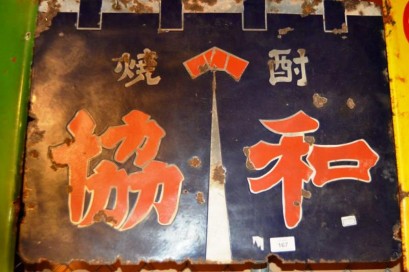 焼酎
協和
167